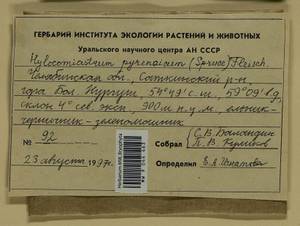 ГЕРБАРИЙ ИНСТИТУТА ЭКОЛОГИИ РАСТЕНИЙ И ЖИВОТНЫХ
Уральского научного центра АН СССР
Hylocomiastrum pyrenaicum (Spruce) Fleisch.
Челябинская обл., Саткинский р-н,
гора Бол. Нургуш, 54°49' с.ш., 59°09' в.д.
склон 4° сев. эксп., 900 м н.у.м., ельник-
черничник-зеленомошник
№ 92
Собрал С.В. Баландин
П.В. Куликов
23 августа 1997 г.
Определил Е.А. Игнатова